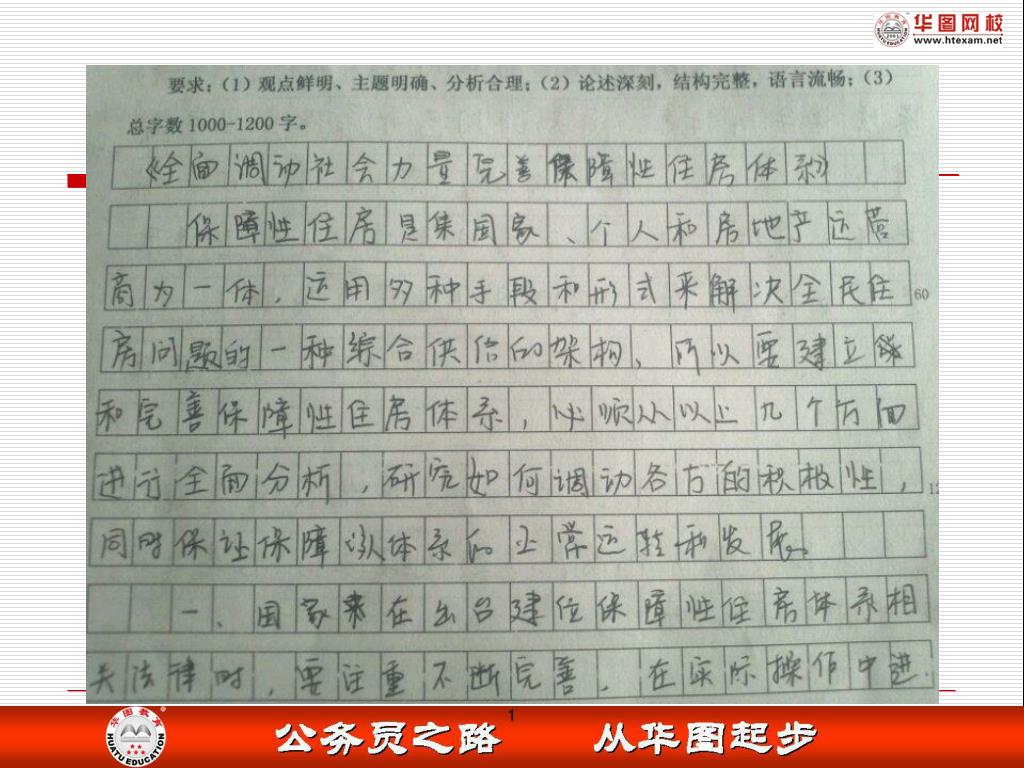 华图网校
www.htexam.net
要求：（1）观点鲜明、主题明确、分析合理；（2）论述深刻，结构完整，语言流畅；（3）
总字数 1000-1200 字。
《全面调动社会力量完善保障性住房体系》
保障性住房是集国家、个人和房地产运营
商为一体，运用多种手段和形式来解决全民住
60
房问题的一种综合供给的架构，所以要建立
和完善保障性住房体系，必须从以上几个方面
进行全面分析，研究如何调动各方的积极性，
12
同时保证保障以体系的正常运转和发展。
一、国家来在出台建位保障性住房体系相
关法律时，要注重不断完善，在实际操作中进
1
华图教育
HUATU EDUCATION
公务员之路 从华图起步